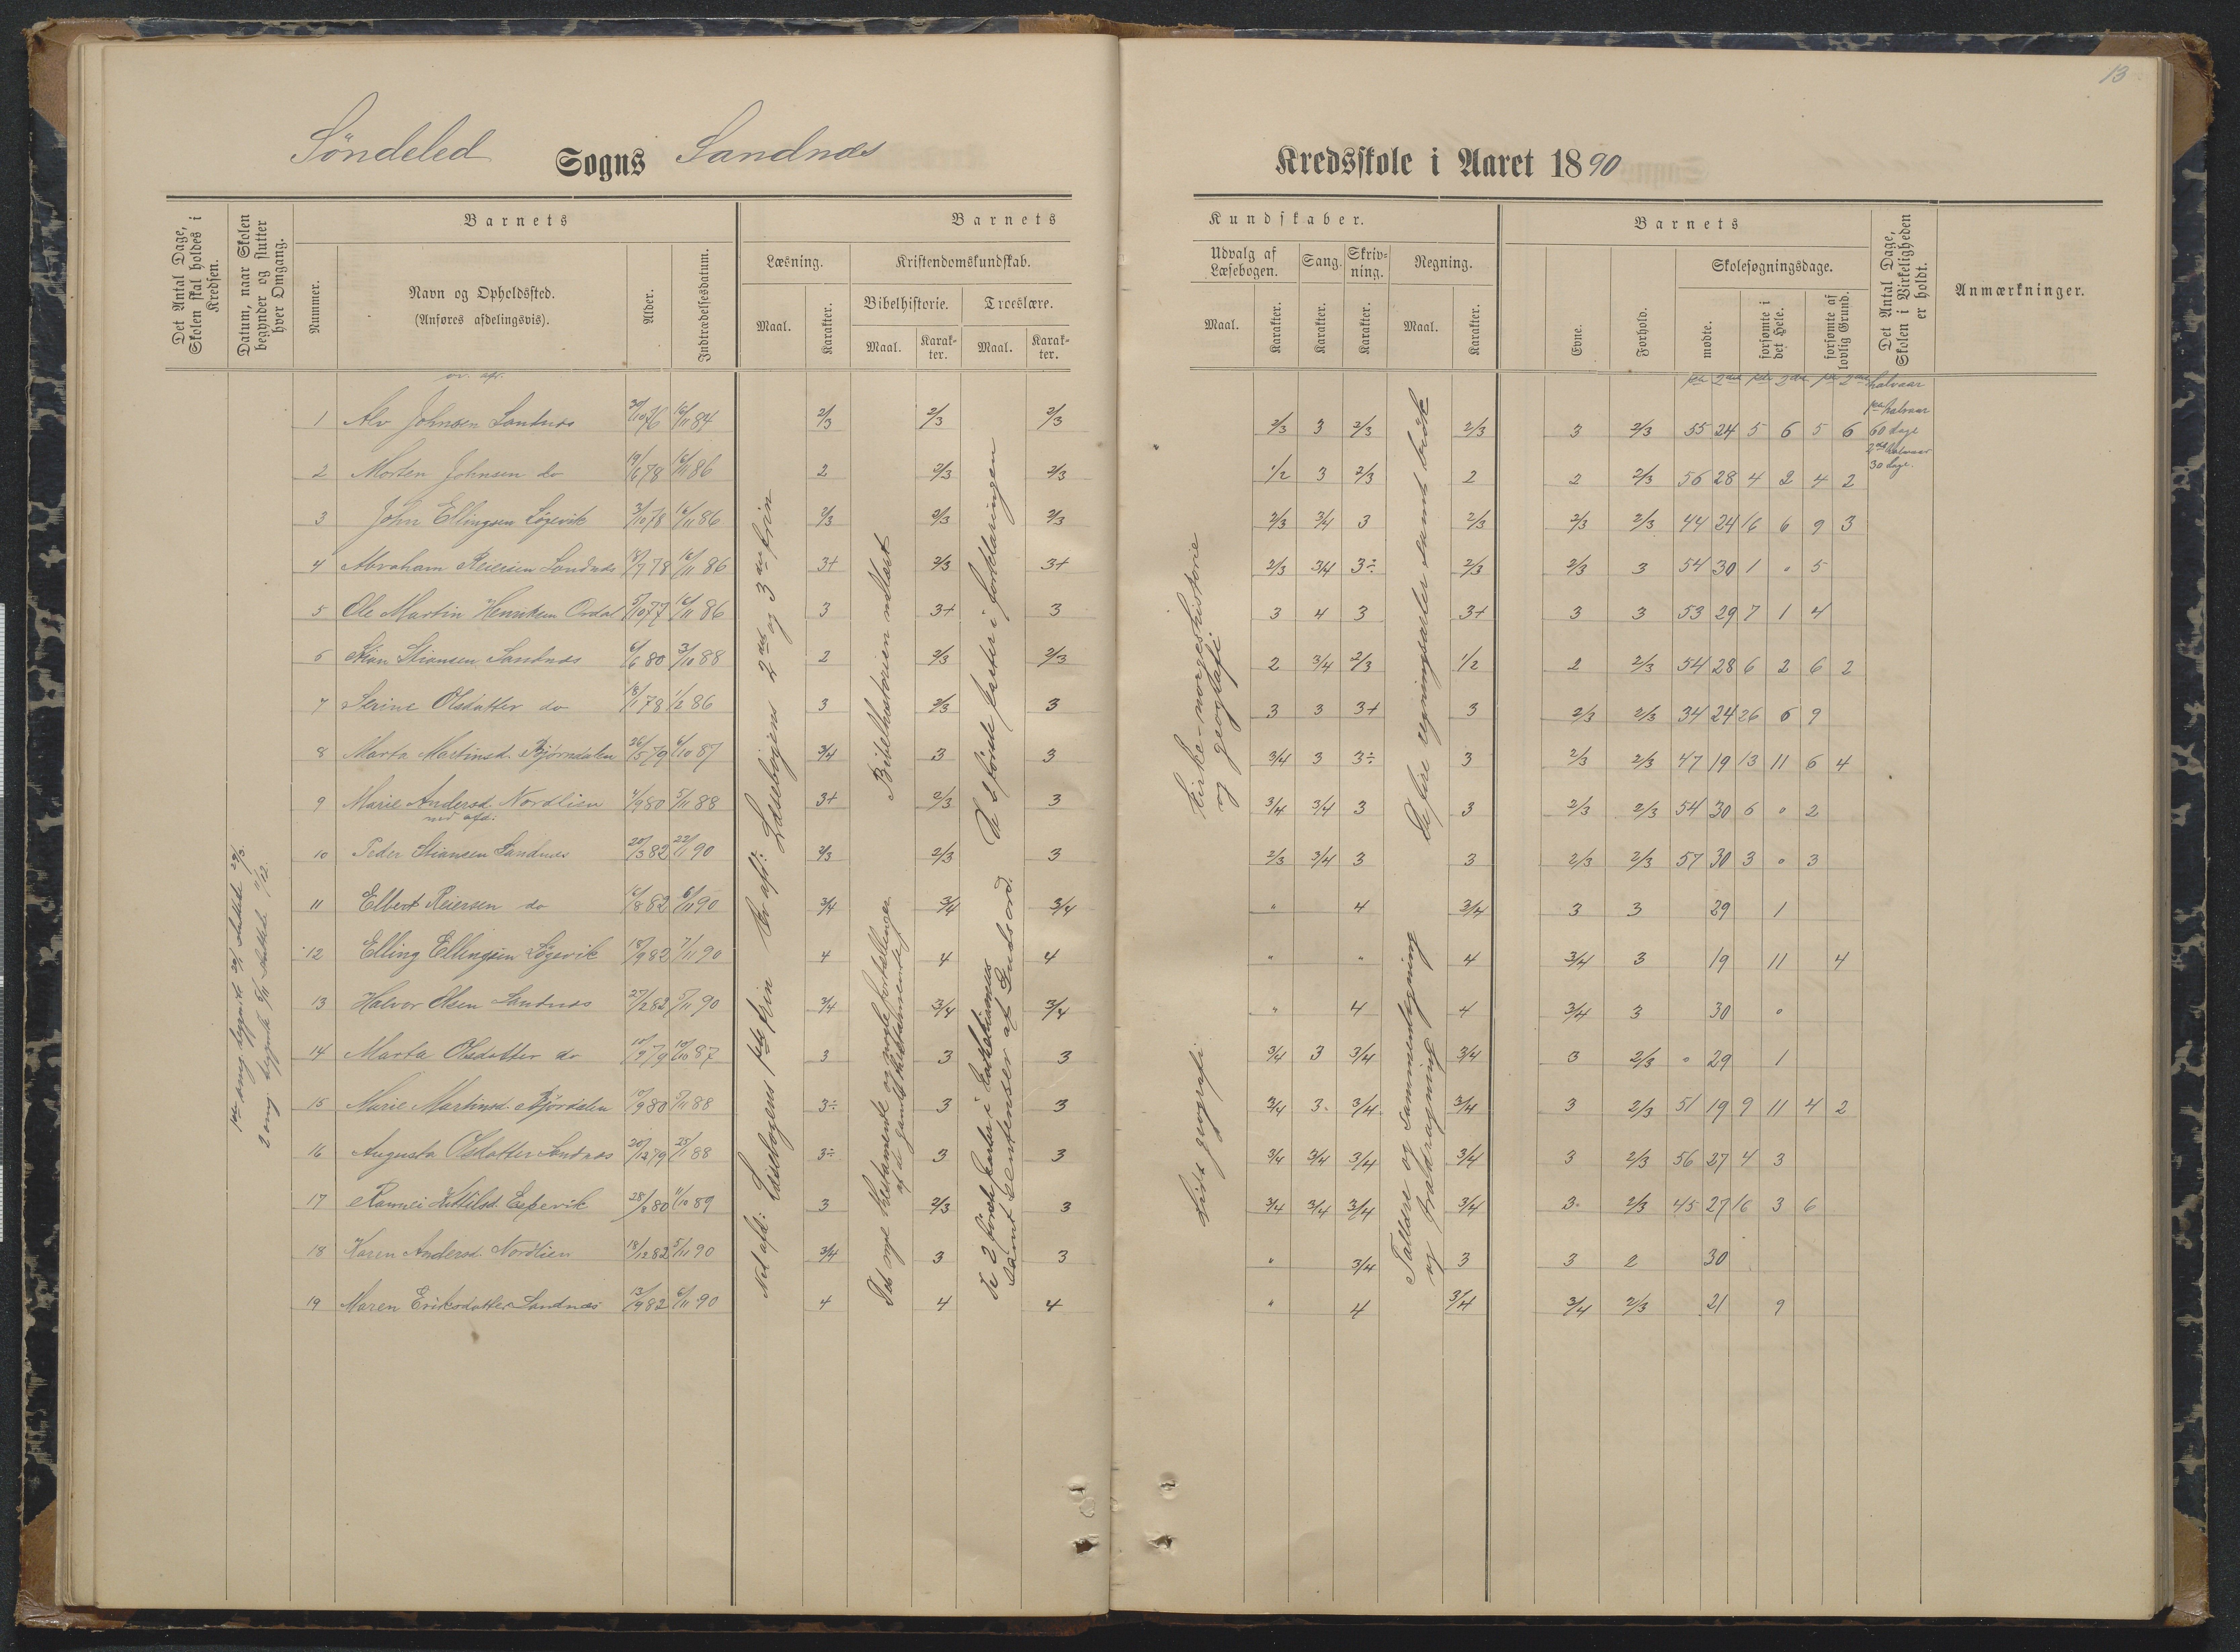 13
Söndeled Sogns Sandnæs Kredsskole i Aaret 1890
Det Antal Dage, Skolen skal holdes i Kredsen.
Datum, naar Skolen begynder og slutter hver Omgang.
Barnets
Nummer.
Navn og Opholdssted.
(Anføres afdelingsvis).
Alder.
Indtrædelsesdatum.
Barnets Kundskaber.
Læsning.
Maal.
Karakter.
Kristendomskundskab.
Bibelhistorie.
Maal.
Karakter.
Troeslære.
Maal.
Karakter.
Udvalg af Læsebogen.
Maal.
Karakter.
Sang.
Karakter.
Skrivning.
Karakter.
Regning.
Maal.
Karakter.
Barnets
Evne.
Forhold.
Skolesøgningsdage.
mødte.
forsømte i det Hele.
forsømte af lovlig Grund.
Det Antal Dage, Skolen i Virkeligheden er holdt.
Anmærkninger.
öv. afd.
1ste 2det 1ste 2det 1ste 2det halvaar
1ste halvaar
60 dage
2det halvaar
30 dage.
1 Alv Johnsen Sandnæs 30/10 76 16/11 84 2/3 2/3 2/3 2/3 3 2/3 2/3 3 2/3 55 24 5 6 5 6
2 Morten Johnsen do 19/6 78 16/11 86 2 2/3 2/3 1/2 3 2/3 2 2 2/3 56 28 4 2 4 2
3 John Ellingsen Lögevik 3/10 78 16/11 86 2/3 2/3 2/3 2/3 3/4 3 2/3 2/3 2/3 44 24 16 6 9 3
4 Abraham Reiersen Sandnæs 18/7 78 16/11 86 3+ 2/3 3+ 2/3 3/4 3÷ 2/3 2/3 3 54 30 1 " 5
5 Ole Martin Henriksen Ordal 5/10 77 16/11 86 3 3+ 3 3 4 3 3+ 3 3 53 29 7 1 4
6 Stian Stiansen Sandnæs 6/6 80 3/10 88 2 2/3 2/3 2 3/4 2/3 1/2 2 2/3 54 28 6 2 6 2
7 Sterine Olsdatter do 18/1 78 1/2 86 3 2/3 3 3 3 3+ 3 2/3 2/3 34 24 26 6 9
8 Marta Martinsd. Bjørndalen 26/5 79 6/10 87 3/4 3 3 3/4 3 3÷ 3 2/3 2/3 47 19 13 11 6 4
9 Marie Andersd. Nordlien 4/9 80 5/11 88 3+ 2/3 3 3/4 3/4 3 3 2/3 2/3 54 30 6 " 2
ned afd:
10 Peder Stiansen Sandnæs 20/3 82 22/1 90 2/3 2/3 3 2/3 3/4 3 3 2/3 2/3 57 30 3 " 3
11 Elbert Reiersen do 16/8 82 6/11 90 3/4 3/4 3/4 " 4 3/4 3 3 29 1
12 Elling Ellingsen Lögevik 18/9 82 7/11 90 4 4 4 " " 4 3/4 3 19 11 4
13 Halvor Olsen Sandnæs 27/2 82 5/11 90 3/4 3/4 3/4 " 4 4 3/4 3 30 "
14 Marta Olsdatter do 10/9 79 10/10 87 3 3 3 3/4 3 3/4 3/4 3 2/3 " 29 1
15 Marie Martinsd. Bjørdalen 10/9 80 5/11 88 3÷ 3 3 3/4 3 3/4 3/4 3 2/3 51 19 9 11 4 2
16 Augusta Olsdatter Sandnæs 20/12 79 25/1 88 3÷ 3 3 3/4 3/4 3/4 3/4 3 2/3 56 27 4 3
17 Kittilsd. Espevik 28/2 80 11/10 89 3 2/3 3 3/4 3/4 3/4 3/4 3 2/3 45 27 16 3 6
18 Karen Andersd. Nordlien 18/12 82 5/11 90 3/4 3 3 " 3/4 3 3 2 30
19 Maren Eriksdatter Sandnæs 13/9 82 6/11 90 4 4 4 " 4 3/4 3/4 2/3 21 9
1ste omg. begynte 20/1 sluttede 29/3.
2 omg. begynte 5/11 sluttede 11/12.
Ned afd: Læsebogens 1ste trin
Öv afd: Læsebogens 2det og 3die trin
Bibelhistorien utlært
Det nye testamente og nogle fortællinger
af det gamle testamente
De 3 förste parter i forklaringen
De 2 förste parter i katekismus
samt sentenser af Guds ord.
Kirke- norgeshistorie
og geografi
Lidt geografi
De fire regningsarter samt brök
Tallære og sammenlægning
og fradragning